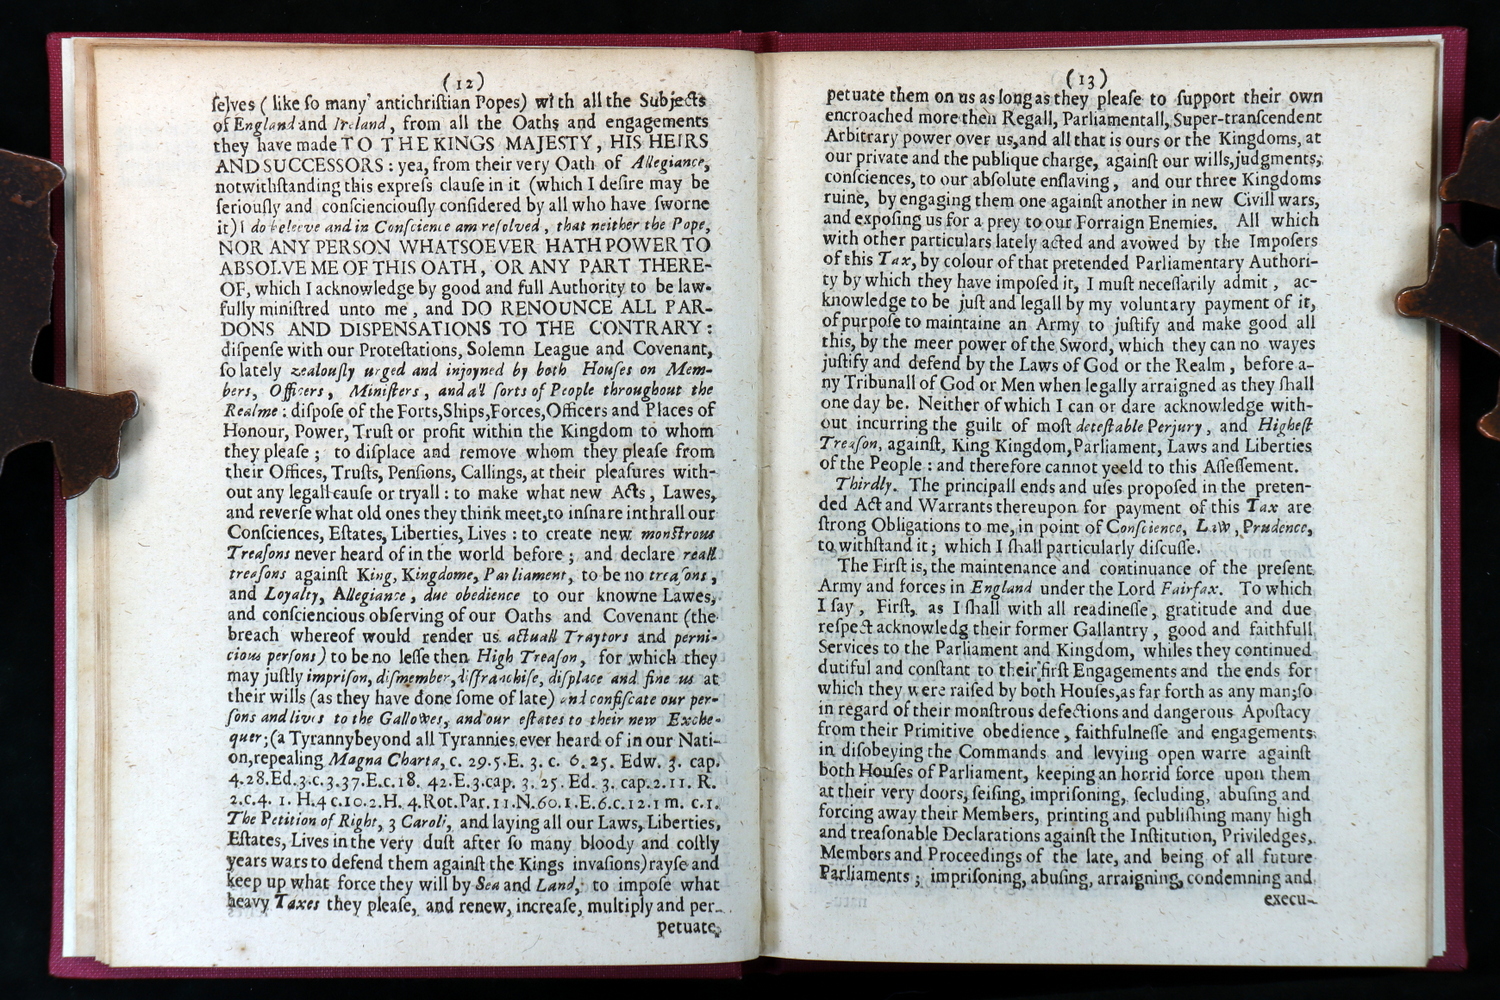 (12)
ſelves ( like ſo many antichriſtian Popes) with all the Subjects
of England and Ireland, from all the Oaths and engagements
they have made TO THE KINGS MAJESTY, HIS HEIRS
AND SUCCESSORS : yea, from their very Oath of Allegiance,
notwithſtanding this expreſs clauſe in it (which I deſire may be
ſeriouſly and conſcienciouſly conſidered by all who have ſworne
it) I do beleeve and in Conſcience am reſolved, that neither the Pope,
NOR ANY PERSON WHATSOEVER HATH POWER TO
ABSOLVE ME OF THIS OATH, OR ANY PART THERE-
OF, which I acknowledge by good and full Authority to be law-
fully miniſtred unto me, and DO RENOUNCE ALL PAR-
DONS AND DISPENSATIONS TO THE CONTRARY :
diſpenſe with our Proteſtations, Solemn League and Covenant,
ſo lately zealouſly urged and injoyned by both Houſes on Mem-
bers, Officers, Miniſters, and all ſorts of People throughout the
Realme : diſpoſe of the Forts,Ships,Forces,Officers and Places of
Honour, Power, Truſt or profit within the Kingdom to whom
they pleaſe ; to diſplace and remove whom they pleaſe from
their Offices, Truſts, Penſions, Callings, at their pleaſures with-
out any legall cauſe or tryall : to make what new Acts, Lawes,
and reverſe what old ones they think meet,to inſnare inthrall our
Conſciences, Eſtates, Liberties, Lives : to create new monſtrous
Treaſons never heard of in the world before ; and declare reall
treaſons againſt King, Kingdome, Parliament, to be no treaſons,
and Loyalty, Allegiance, due obedience to our knowne Lawes,
and conſciencious obſerving of our Oaths and Covenant (the
breach whereof would render us actuall Traytors and perni-
cious perſons) to be no leſſe then High Treaſon, for which they
may juſtly impriſon, diſmember, diſfranchiſe, diſplace and fine us at
their wills (as they have done ſome of late) and confiſcate our per-
ſons and lives to the Gallowes, and our eſtates to their new Exche-
quer;(a Tyranny beyond all Tyrannies ever heard of in our Nati-
on,repealing Magna Charta, c. 29.5.E. 3. c. 6.25. Edw. 3. cap.
4.28.Ed.3.c.3.37.E.c.18. 42.E.3.cap. 3. 25. Ed. 3. cap.2.11. R.
2.c.4. 1. H.4 c.10.2.H. 4.Rot.Par.11.N.60.1.E.6.c.12.1 m. c.1.
The Petition of Right, 3 Caroli, and laying all our Laws, Liberties,
Eſtates, Lives in the very duſt after ſo many bloody and coſtly
years wars to defend them againſt the Kings invaſions) rayſe and
keep up what force they will by Sea and Land, to impoſe what
heavy Taxes they pleaſe, and renew, increaſe, multiply and per-
petuate
(13)
petuate them on us as long as they pleaſe to ſupport their own
encroached more then Regall, Parliamentall, Super-tranſcendent
Arbitrary power over us,and all that is ours or the Kingdoms, at
our private and the publique charge, againſt our wills,judgments,
conſciences, to our abſolute enſlaving, and our three Kingdoms
ruine, by engaging them one againſt another in new Civill wars,
and expoſing us for a prey to our Forraign Enemies. All which
with other particulars lately acted and avowed by the Impoſers
of this Tax, by colour of that pretended Parliamentary Authori-
ty by which they have impoſed it, I muſt neceſſarily admit, ac-
knowledge to be juſt and legall by my voluntary payment of it,
of purpoſe to maintaine an Army to juſtify and make good all
this, by the meer power of the Sword, which they can no wayes
juſtify and defend by the Laws of God or the Realm, before a-
ny Tribunall of God or Men when legally arraigned as they ſhall
one day be. Neither of which I can or dare acknowledge with-
out incurring the guilt of moſt deteſtable Perjury, and Higheſt
Treaſon, againſt, King Kingdom,Parliament, Laws and Liberties
of the People : and therefore cannot yeeld to this Aſſeſſement.
Thirdly. The principall ends and uſes propoſed in the preten-
ded Act and Warrants thereupon for payment of this Tax are
ſtrong Obligations to me, in point of Conſcience, Law, Prudence,
to withſtand it ; which I ſhall particularly diſcuſſe.
The Firſt is, the maintenance and continuance of the preſent
Army and forces in England under the Lord Fairfax. To which
I ſay, Firſt, as I ſhall with all readineſſe, gratitude and due
reſpect acknowledg their former Gallantry, good and faithfull
Services to the Parliament and Kingdom, whiles they continued
dutiful and conſtant to their firſt Engagements and the ends for
which they were raiſed by both Houſes,as far forth as any man;ſo
in regard of their monſtrous defections and dangerous Apoſtacy
from their Primitive obedience, faithfulneſſe and engagements
in diſobeying the Commands and levying open warre againſt
both Houſes of Parliament, keeping an horrid force upon them
at their very doors, ſeiſing, impriſoning, ſecluding, abuſing and
forcing away their Members, printing and publiſhing many high
and treaſonable Declarations againſt the Inſtitution, Priviledges,
Members and Proceedings of the late, and being of all future
Parliaments ; impriſoning, abuſing, arraigning, condemning and
execu-